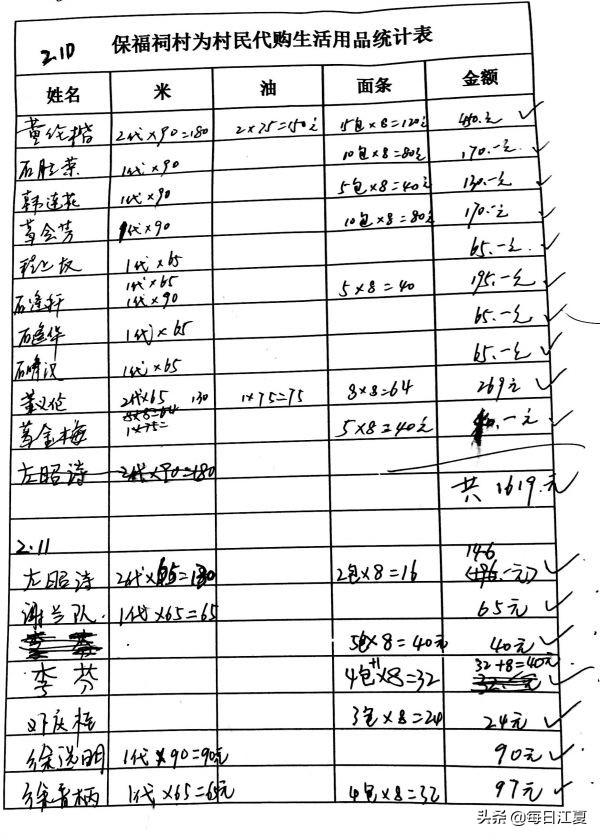 2.10 保福祠村为村民代购生活用品统计表
姓名 米 油 面条 金额
董伦楷 2代×90=180 2×75=150元 15包×8=120元 450.元
石胜荣 1代×90 10包×8=80元 170.一元
韩莲花 1代×90 5包×8=40元 130.一元
董会芳 1代×90 10包×8=80元 170.一元
1代×65 65.一元
1代×65
1代×90 5×8=40 195.一元
1代×65 65.一元
1代×65 65.一元
董义伦 2代×65 130 1×75=75 8×8=64 269元
8×8=64
董金梅 1×75= 5×8=40元 40.一元
左昭诗 2代×90=180
共1619.元
2.11
146
左昭诗 2代×65=130 2包×8=16 (196.一元)
谢兰队 1代×65=65 65元
李芬 5包×8=40元 40元
32+8=40元
李芬 4包+1×8=32 32.元
邓庆桂 3包×8=24 24元
徐说明 1代×90=90元 90元
徐春柄 1代×65=65元 4包×8=32 97元
头条 @每日江夏